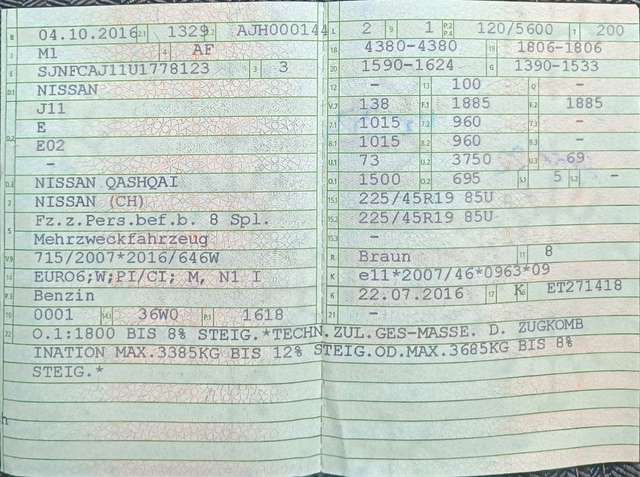 B 04.10.2016 2.1 1329 2.2 AJH000144
J M1 4 AF
E SJNFCAJ11U1778123 3 3
D.1 NISSAN
J11
D.2 E
E02
-
D.3 NISSAN QASHQAI
2 NISSAN (CH)
5 Fz.z.Pers.bef.b. 8 Spl.
Mehrzweckfahrzeug
V.9 715/2007*2016/646W
14 EURO6;W;PI/CI; M, N1 I
P.3 Benzin
10 0001 14.1 36WO P.1 1618
22 O.1:1800 BIS 8% STEIG.*TECHN.ZUL.GES-MASSE. D. ZUGKOMB
INATION MAX.3385KG BIS 12% STEIG.OD.MAX.3685KG BIS 8%
STEIG.*
L 2 9 1 P.2 P.4 120/5600 T 200
18 4380-4380 19 1806-1806
20 1590-1624 G 1390-1533
12 - 13 100 Q -
V.7 138 F.1 1885 F.2 1885
7.1 1015 7.2 960 7.3 -
8.1 1015 8.2 960 8.3 -
U.1 73 U.2 3750 U.3 69
O.1 1500 O.2 695 S.1 5 S.2 -
15.1 225/45R19 85U
15.2 225/45R19 85U
15.3 -
R Braun 11 8
K e11*2007/46*0963*09
6 22.07.2016 17 K 16 ET271418
21 -